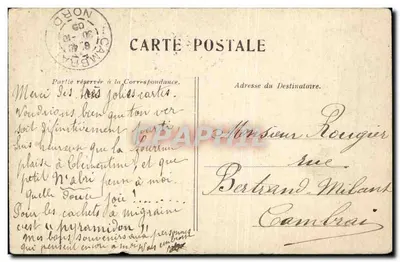 CAMBRAI
NORD
CARTE POSTALE
Partie réservée à la Correspondance.
Adresse du Destinataire.
Merci des jolies cartes.
Voudrions bien que ton ver
soit définitivement parti
Suis heureuse que la
plaise à Clémentine, et que
petit pense à moi.
Quelle douce joie!
Pour les cachets la migraine
c'est "pyramidon"!!
mes bons souvenirs aux personnes
qui pensent encore à moi
Monsieur Rougier
rue
Bertrand Milant
Cambrai